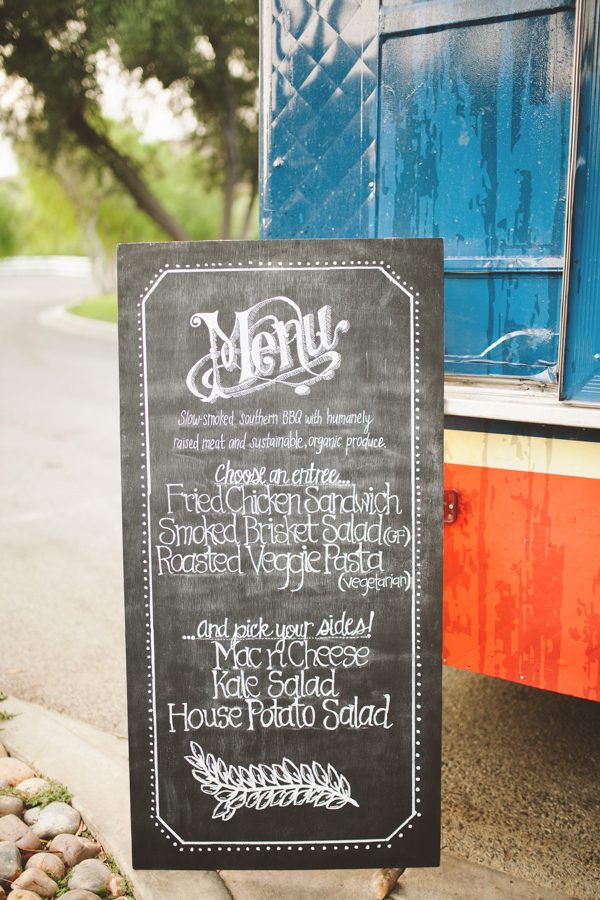 Menu
Slow-smoked southern BBQ with humanely
raised meat and sustainable, organic produce.
Choose an entree...
Fried Chicken Sandwich
Smoked Brisket Salad (GF)
Roasted Veggie Pasta
(vegetarian)
...and pick your sides!
Mac n Cheese
Kale Salad
House Potato Salad